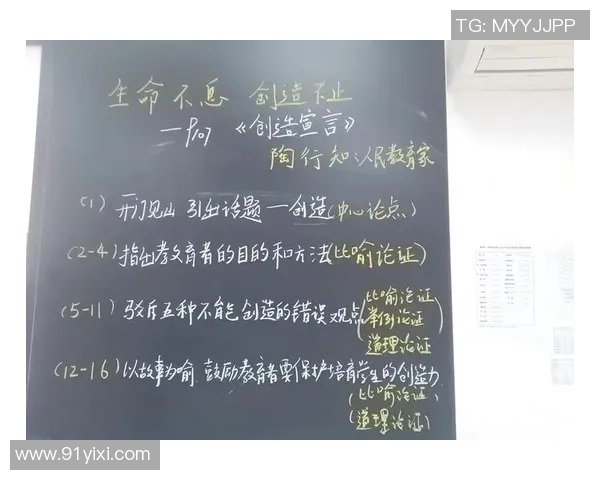 TG: MYYJJPP
生命不息 创造不止
—P107 《创造宣言》
陶行知:人民教育家
(1) 开门见山 引出话题—创造(中心论点)
(2-4) 指出教育者的目的和方法(比喻论证)
(5-11) 驳斥五种不能创造的错误观点(比喻论证,
举例论证
道理论证)
(12-16) 以故事为喻 鼓励教育者要保护培育学生的创造力
(比喻论证,
道理论证)
www.91yixi.com